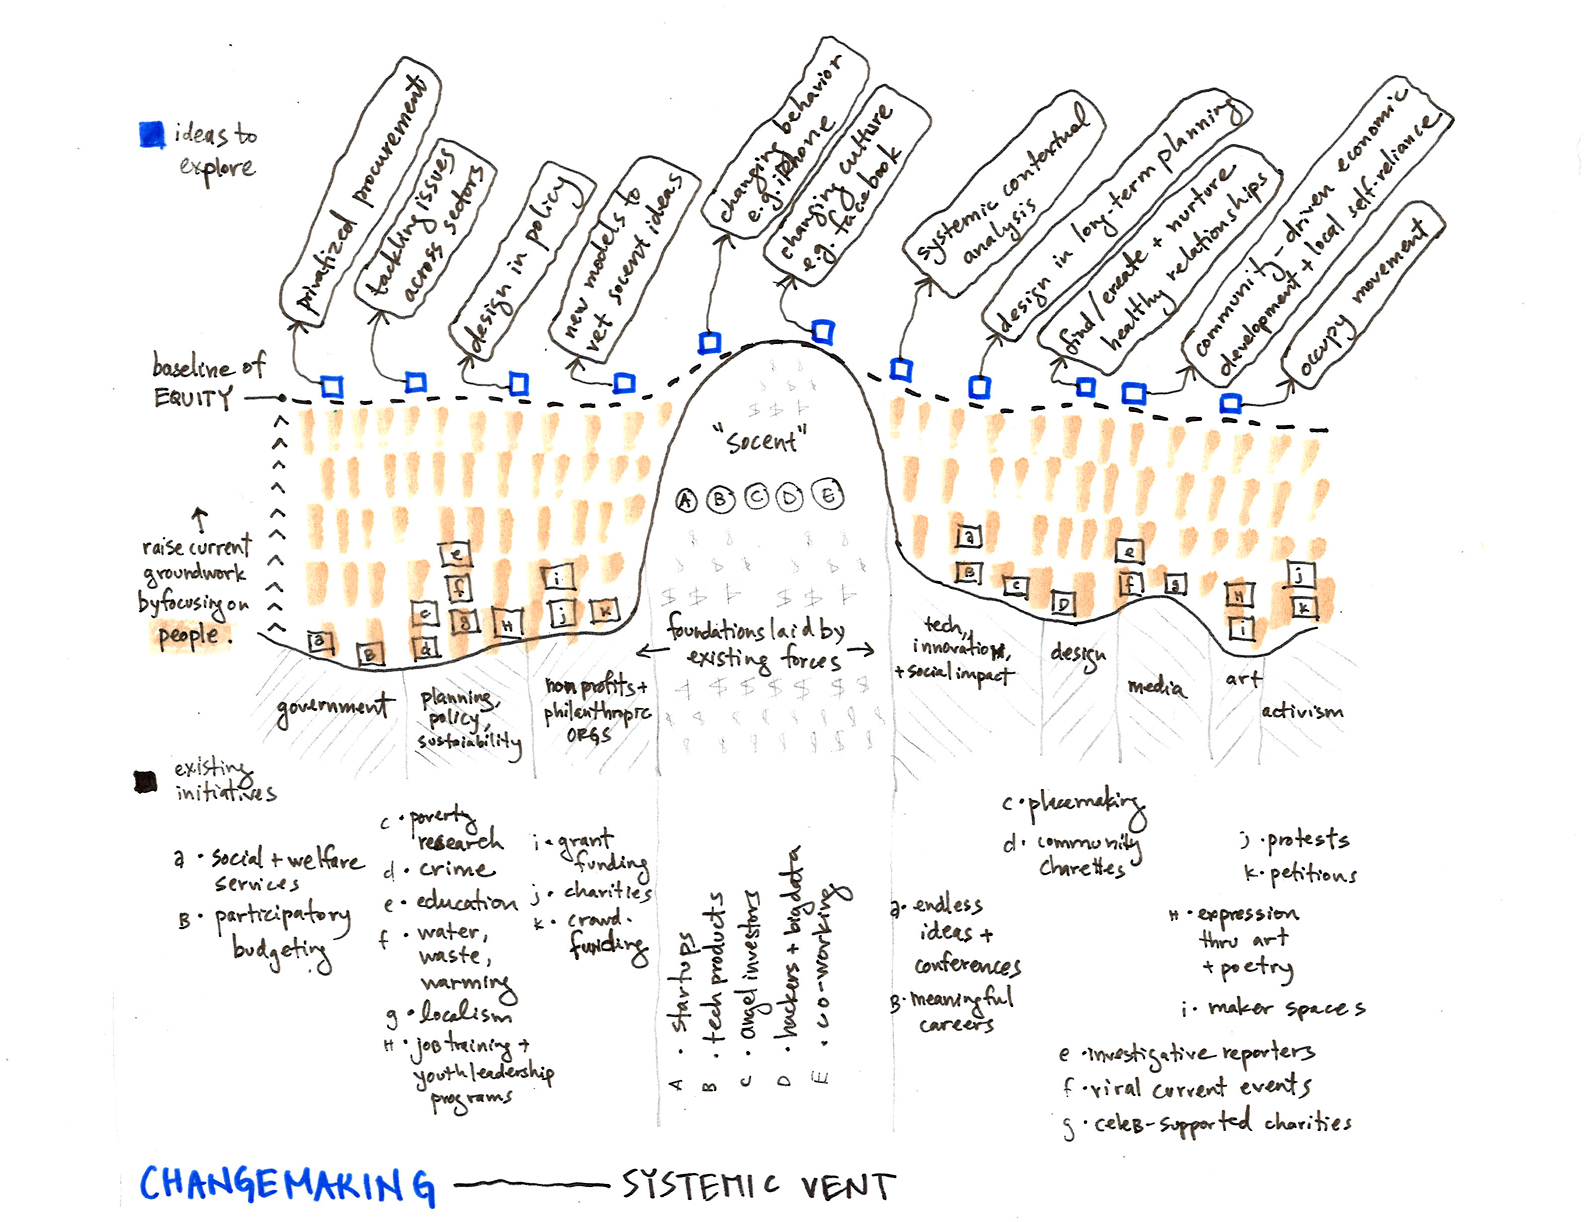 ideas to
explore
privatized procurement
tackling issues
across sectors
design in policy
new models to
vet socent ideas
changing behavior
e.g. iPhone
changing culture
e.g. facebook
systemic contextual
analysis
design in long-term planning
find/create + nurture
healthy relationships
community-driven economic
development + local self-reliance
occupy movement
baseline of
EQUITY
"socent"
A B C D E
raise current
groundwork
by focusing on
people.
a
B
c
d
e
f
g
H
i
j
k
a
B
c
D
e
f
g
H
i
j
k
foundations laid by
existing forces
government
planning,
policy,
sustaiability
non profits +
philanthropic
ORGS
tech,
innovation,
+ social impact
design
media
art
activism
existing
initiatives
a · social + welfare
services
B · participatory
budgeting
c · poverty
research
d · crime
e · education
f · water,
waste,
warming
g · localism
H · joB training +
youth leadership
programs
i · grant
funding
j · charities
k · crowd-
funding
A · startups
B · tech products
C · angel investors
D · hackers + big data
E · co-working
a · endless
ideas +
conferences
B · meaningful
careers
c · placemaking
d · community
charettes
e · investigative reporters
f · viral current events
g · celeB-supported charities
H · expression
thru art
+ poetry
i · maker spaces
j · protests
k · petitions
CHANGEMAKING — SYSTEMIC VENT